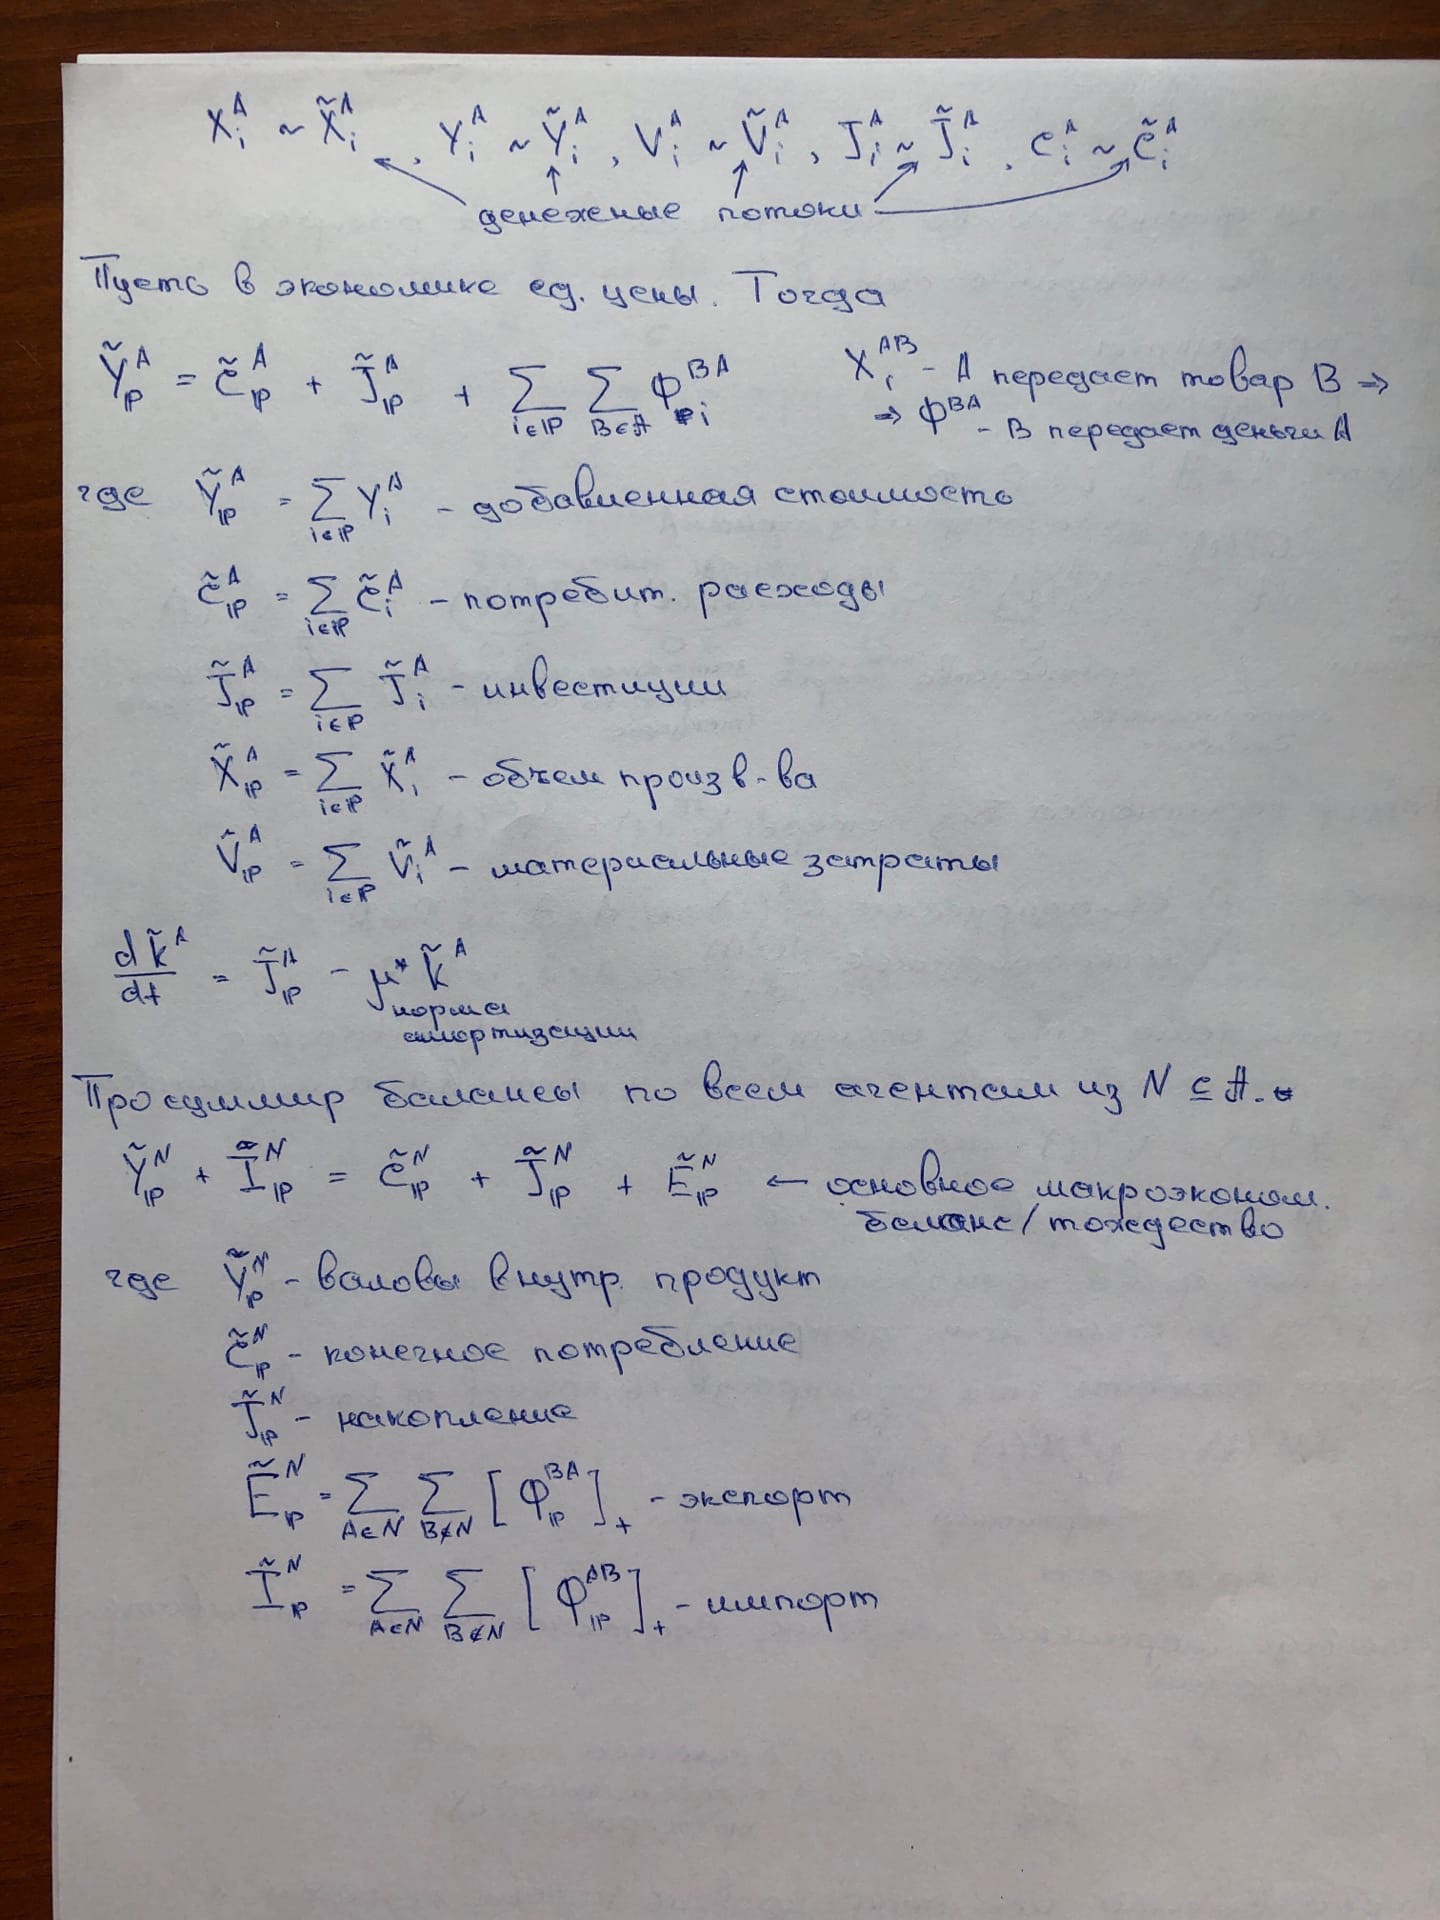 X_i^A ~ X̃_i^A, Y_i^A ~ Ỹ_i^A, V_i^A ~ Ṽ_i^A, J_i^A ~ J̃_i^A, C_i^A ~ C̃_i^A
денежные потоки
Пусть в экономике ед. цены. Тогда
Ỹ_ℙ^A = C̃_ℙ^A + J̃_ℙ^A + ∑_{i∈ℙ} ∑_{B∈𝔸} Φ_i^{BA} X_i^{AB} - A передает товар B ⇒
⇒ Φ^{BA} - B передает деньги A
где Ỹ_ℙ^A = ∑_{i∈ℙ} Y_i^A - добавленная стоимость
C̃_ℙ^A = ∑_{i∈ℙ} C̃_i^A - потребит. расходы
J̃_ℙ^A = ∑_{i∈ℙ} J̃_i^A - инвестиции
X̃_ℙ^A = ∑_{i∈ℙ} X̃_i^A - объем произв-ва
Ṽ_ℙ^A = ∑_{i∈ℙ} Ṽ_i^A - материальные затраты
dk̃^A/dt = J̃_ℙ^A - μ* k̃^A
норма
амортизации
Просуммир балансы по всем агентам из N ⊆ 𝔸.
Ỹ_ℙ^N + Ĩ_ℙ^N = C̃_ℙ^N + J̃_ℙ^N + Ẽ_ℙ^N ← основное макроэконом.
баланс/тождество
где Ỹ_ℙ^N - валовы внутр. продукт
C̃_ℙ^N - конечное потребление
J̃_ℙ^N - накопление
Ẽ_ℙ^N = ∑_{A∈N} ∑_{B∉N} [Φ_ℙ^{BA}]_+ - экспорт
Ĩ_ℙ^N = ∑_{A∈N} ∑_{B∉N} [Φ_ℙ^{AB}]_+ - импорт